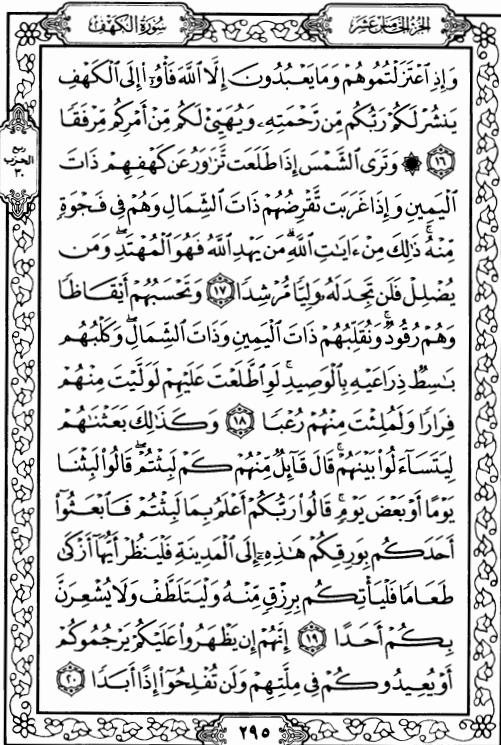 سُورَةُ الكَهْفِ
الجُزْءُ الخَامِسَ عَشَرَ
وَإِذِ ٱعْتَزَلْتُمُوهُمْ وَمَا يَعْبُدُونَ إِلَّا ٱللَّهَ فَأْوُۥٓا۟ إِلَى ٱلْكَهْفِ
يَنشُرْ لَكُمْ رَبُّكُم مِّن رَّحْمَتِهِۦ وَيُهَيِّئْ لَكُم مِّنْ أَمْرِكُم مِّرْفَقًا
١٦ ۞ وَتَرَى ٱلشَّمْسَ إِذَا طَلَعَت تَّزَٰوَرُ عَن كَهْفِهِمْ ذَاتَ
ربع
الحزب
٣٠
ٱلْيَمِينِ وَإِذَا غَرَبَت تَّقْرِضُهُمْ ذَاتَ ٱلشِّمَالِ وَهُمْ فِى فَجْوَةٍ
مِّنْهُ ۚ ذَٰلِكَ مِنْ ءَايَٰتِ ٱللَّهِ ۗ مَن يَهْدِ ٱللَّهُ فَهُوَ ٱلْمُهْتَدِ ۖ وَمَن
يُضْلِلْ فَلَن تَجِدَ لَهُۥ وَلِيًّا مُّرْشِدًا ١٧ وَتَحْسَبُهُمْ أَيْقَاظًا
وَهُمْ رُقُودٌ ۚ وَنُقَلِّبُهُمْ ذَاتَ ٱلْيَمِينِ وَذَاتَ ٱلشِّمَالِ ۖ وَكَلْبُهُم
بَٰسِطٌ ذِرَاعَيْهِ بِٱلْوَصِيدِ ۚ لَوِ ٱطَّلَعْتَ عَلَيْهِمْ لَوَلَّيْتَ مِنْهُمْ
فِرَارًا وَلَمُلِئْتَ مِنْهُمْ رُعْبًا ١٨ وَكَذَٰلِكَ بَعَثْنَٰهُمْ
لِيَتَسَآءَلُوا۟ بَيْنَهُمْ ۚ قَالَ قَآئِلٌ مِّنْهُمْ كَمْ لَبِثْتُمْ ۖ قَالُوا۟ لَبِثْنَا
يَوْمًا أَوْ بَعْضَ يَوْمٍ ۚ قَالُوا۟ رَبُّكُمْ أَعْلَمُ بِمَا لَبِثْتُمْ فَٱبْعَثُوٓا۟
أَحَدَكُم بِوَرِقِكُمْ هَٰذِهِۦٓ إِلَى ٱلْمَدِينَةِ فَلْيَنظُرْ أَيُّهَآ أَزْكَىٰ
طَعَامًا فَلْيَأْتِكُم بِرِزْقٍ مِّنْهُ وَلْيَتَلَطَّفْ وَلَا يُشْعِرَنَّ
بِكُمْ أَحَدًا ١٩ إِنَّهُمْ إِن يَظْهَرُوا۟ عَلَيْكُمْ يَرْجُمُوكُمْ
أَوْ يُعِيدُوكُمْ فِى مِلَّتِهِمْ وَلَن تُفْلِحُوٓا۟ إِذًا أَبَدًا ٢٠
٢٩٥